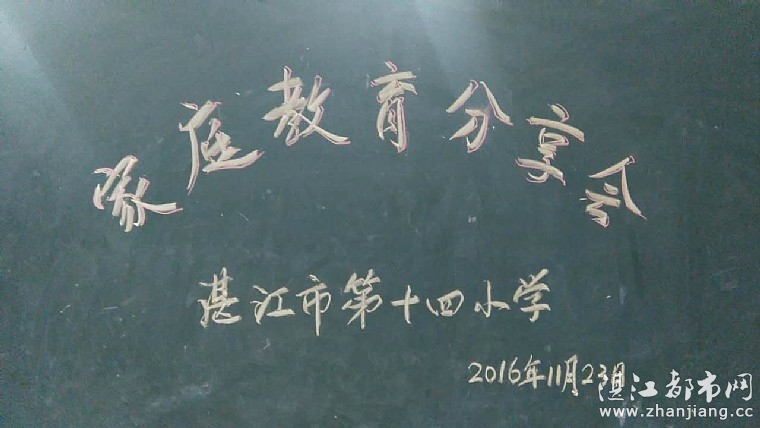 家庭教育分享会
湛江市第十四小学
2016年11月23日
湛江都市网
www.zhanjiang.cc